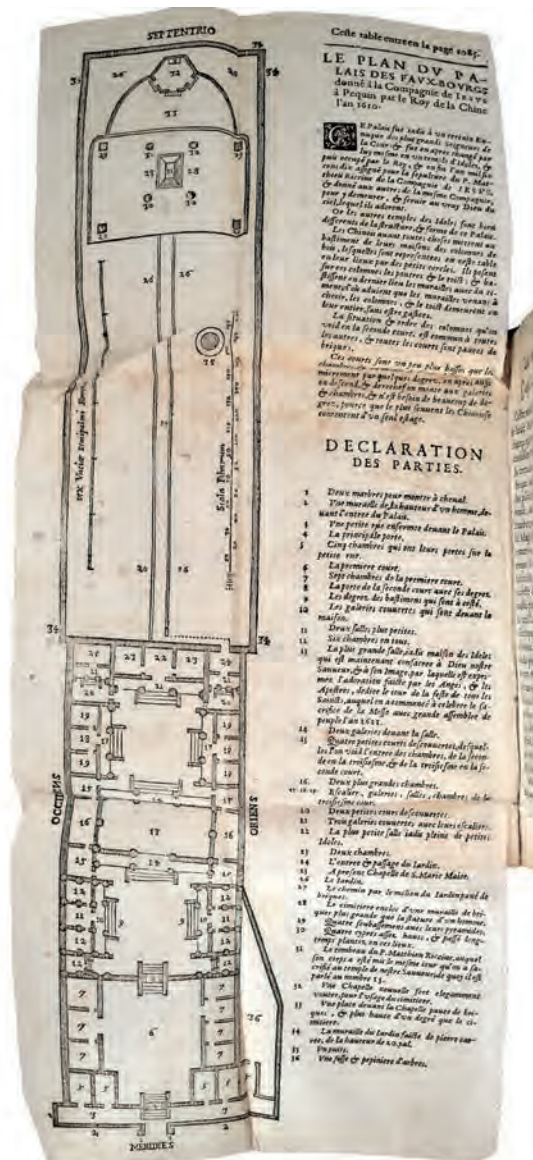 SEPTENTRIO
OCCIDENS
ORIENS
MERIDIES
Scala Palmorum
Ceste table entre en la page 1085.
LE PLAN DV PA-
LAIS DES FAVX-BOVRGS
donné à la Compagnie de IESVS
à Pequin par le Roy de la Chine
l'an 1610.
CE Palais fut iadis à vn certain Eu-
nuque des plus grands Seigneurs de
la Cour, & fut en apres changé par
luy mesme en vn temple d'Idoles, &
puis occupé par le Roy, & en fin l'an mil six
cens dix assigné pour la sepulture du P. Mat-
thieu Riccius de la Compagnie de IESVS,
& donné aux autres de la mesme Compagnie,
pour y demeurer, & seruir au vray Dieu du
ciel, lequel ils adorent.
Or les autres temples des Idoles sont bien
differents de la structure, & forme de ce Palais.
Les Chinois auant toutes choses mettent au
bastiment de leurs maisons des colomnes de
bois, lesquelles sont representees en ceste table
en leur lieux par des petits cercles. Ils posent
sur ces colomnes les poutres, & le toict, & ba-
stissent en dernier lieu les murailles auec du ci-
ment, d'où aduient que les murailles venans à
cheoir, les colomnes, & le toict demeurent en
leur entier, sans estre gastees.
La situation & ordre des colomnes qu'on
void en la seconde court, est commun à toutes
les autres, & toutes les courts sont pauees de
briques.
Ces courts sont vn peu plus basses que les
chambres,
par quelques degrez, en apres aussi
on descend, & derechef on monte aux galeries
& chambres, & n'est besoin de beaucoup de de-
grez, pource que le plus souuent les Chinois se
contentent d'vn seul estage.
DECLARATION
DES PARTIES.
1 Deux marbres pour monter à cheual.
2 Vne muraille de la hauteur d'vn homme, de-
uant l'entree du Palais.
3 Vne petite rue enfermee deuant le Palais.
4 La principale porte.
5 Cinq chambres qui ont leurs portes sur la
petite rue.
6 La premiere court.
7 Sept chambres de la premiere court.
8 La porte de la seconde court auec ses degrez.
9 Les degrez des bastimens qui sont à costé.
10 Les galeries couuertes qui sont deuant la
maison.
11 Deux salles plus petites.
12 Six chambres en tout.
13 La plus grande salle, iadis maison des Idoles
qui est maintenant consacree à Dieu nostre
Sauueur, & à son Image, par laquelle est expri-
mee l'adoration faicte par les Anges, & les
Apostres, dediee le iour de la feste de tous les
Saincts, auquel on a commencé à celebrer le sa-
crifice de la Messe auec grande assemblee de
peuple l'an 1611.
14 Deux galeries deuant la salle.
15 Quatre petites courts descouuertes, desquel-
les l'on void l'entree des chambres, de la secon-
de en la troisiesme, & de la troisiesme en la se-
conde court.
16 Deux plus grandes chambres.
17. 18. 19. Escalier, galeries, salles, chambres de la
troisiesme court.
20 Deux petites cours descouuertes.
21 Trois galeries couuertes auec leurs escaliers.
22 La plus petite salle iadis pleine de petites
Idoles.
23 Deux chambres.
24 L'entree & passage du Iardin.
25 A present Chapelle de S. Marie Maior.
26 Le Iardin.
27 Le chemin par le milieu du Iardin paué de
briques.
28 Le cimitiere enclos d'vne muraille de bri-
ques plus grande que la stature d'vn homme.
29 Quatre soubassemens auec leurs pyramides.
30 Quatre cypres assez hauts, & passé long-
temps plantez, en ces lieux.
31 Le tombeau du P. Matthieu Riccius, auquel
son corps a esté mis le mesme iour qu'on a sa-
crifié au temple de nostre Sauueur
parlé au nombre 13.
32 Vne Chapelle nouuelle fort elegamment
voutee, pour l'vsage du cimitiere.
33 Vne place deuant la Chapelle pauee de bri-
ques, & plus haute d'vn degré que le ci-
mitiere.
34 La muraille du Iardin faicte de pierre car-
ree, de la hauteur de 20. pal.
35 Vn puits.
36 Vne fosse & pepiniere d'arbres.